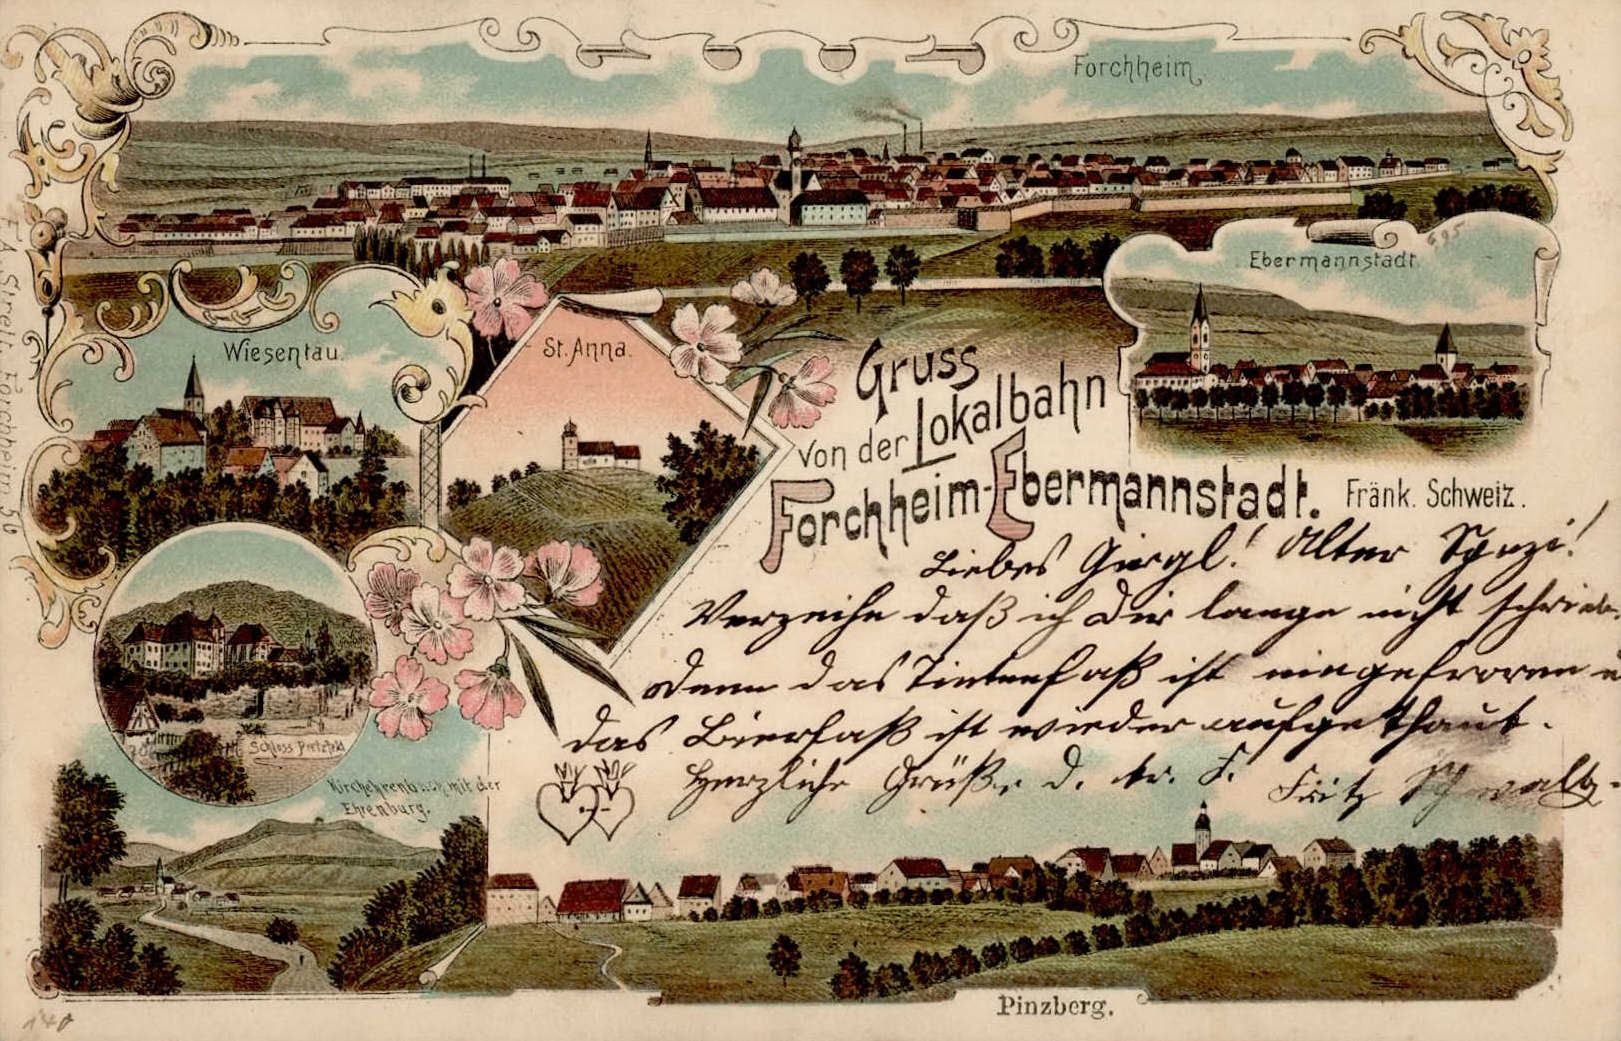 Forchheim.
Ebermannstadt.
Wiesentau.
St. Anna.
Gruss
von der Lokalbahn
Forchheim-Ebermannstadt. Fränk. Schweiz.
Liebes Girgl! Alter Spezi!
Verzeihe daß ich Dir lange nicht schrieb.
denn das Tintenfaß ist eingefroren u
das Bierfaß ist wieder aufgethaut.
Herzliche Grüße, D. tr. F. Fritz
Schloss Pretzfeld
Kirchehrenbach mit der
Ehrenburg.
Pinzberg.
F. A. Streit, Forchheim 56
695
140